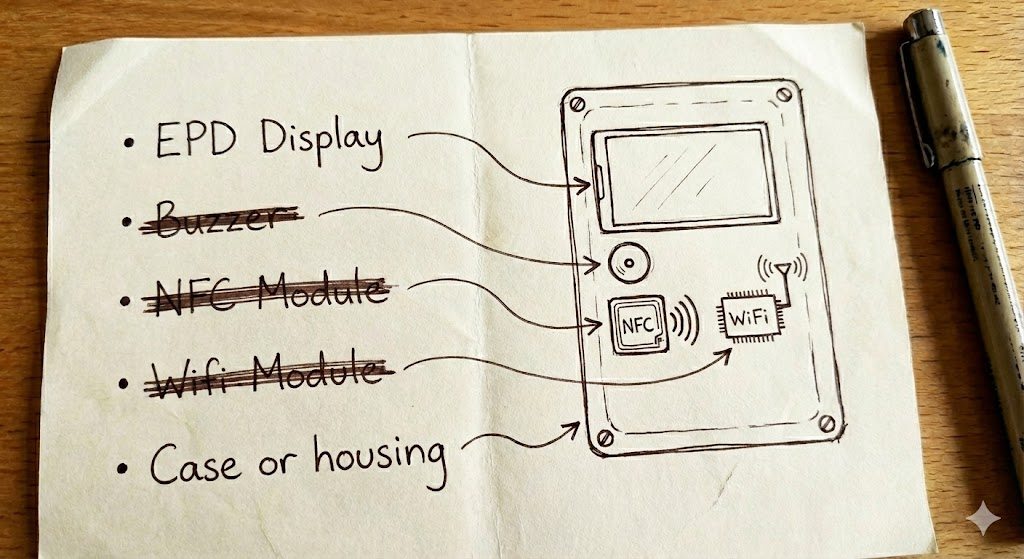 • EPD Display
• Buzzer
• NFC Module
• Wifi Module
• Case or housing
NFC
WiFi